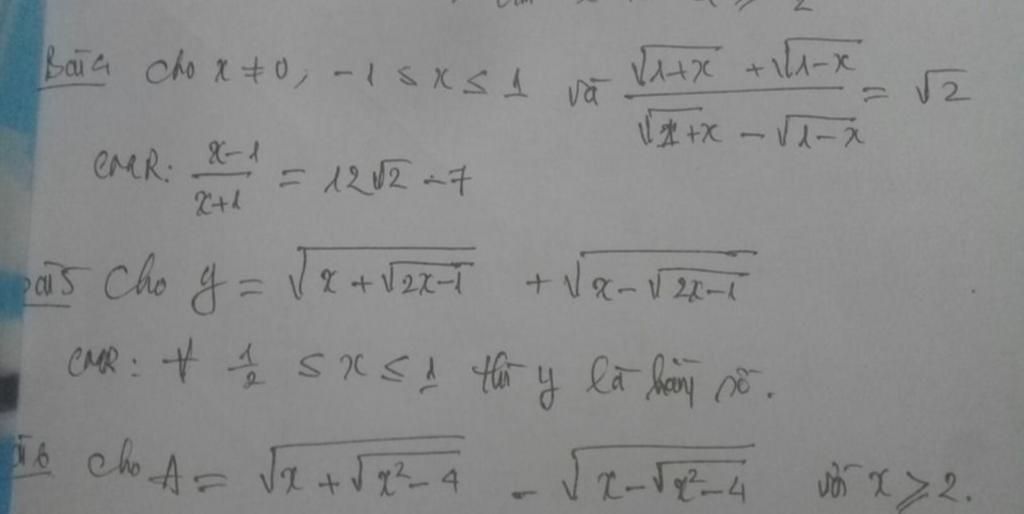 Bài 4 Cho x ≠ 0, -1 ≤ x ≤ 1 và (√(1+x) + √(1-x))/(√(1+x) - √(1-x)) = √2
CMR: (x-1)/(x+1) = 12√2 - 7
Bài 5 Cho y = √(x + √(2x-1)) + √(x - √(2x-1))
CMR: ∀ 1/2 ≤ x ≤ 1 thì y là hằng số.
cho A = √(x + √(x²-4)) - √(x - √(x²-4)) với x ≥ 2.